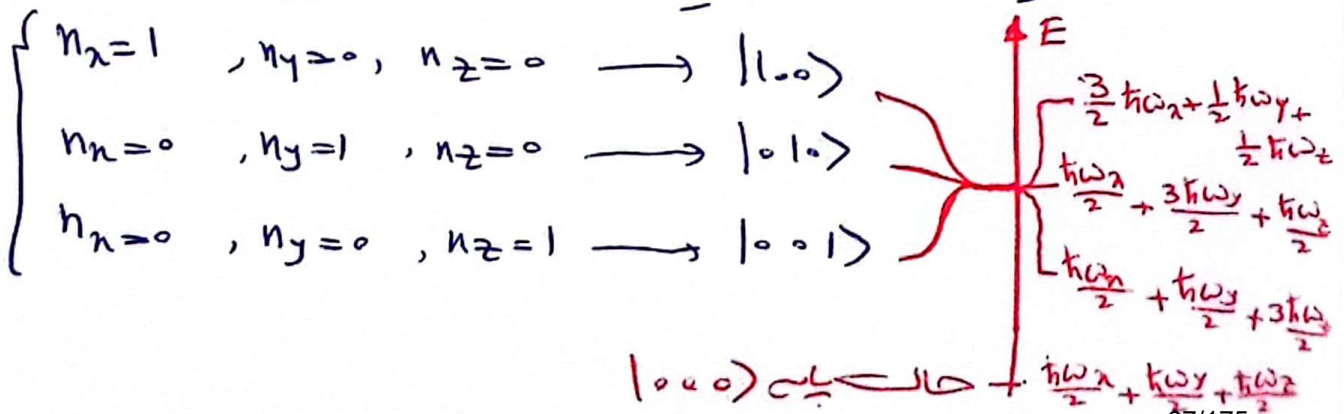 n_x=1 , n_y=0 , n_z=0 → |1 0 0⟩
n_x=0 , n_y=1 , n_z=0 → |0 1 0⟩
n_x=0 , n_y=0 , n_z=1 → |0 0 1⟩
E
3/2 ħω_x + 1/2 ħω_y +
1/2 ħω_z
ħω_x/2 + 3ħω_y/2 + ħω_z/2
ħω_x/2 + ħω_y/2 + 3ħω/2
حالت پایه |0 0 0⟩
ħω_x/2 + ħω_y/2 + ħω_z/2